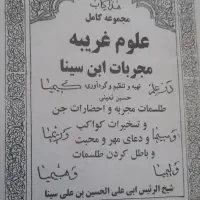 هذا کتاب
مجموعه کامل
علوم غریبه
مجربات ابن سینا
تهیه و تنظیم و گردآوری:
حسین نمینی
طلسمات مجربه و احضارات جن
و تسخیرات کواکب
و دعای مهر و محبت
و باطل کردن طلسمات
شیخ الرئیس ابی علی الحسین بن علی سینا